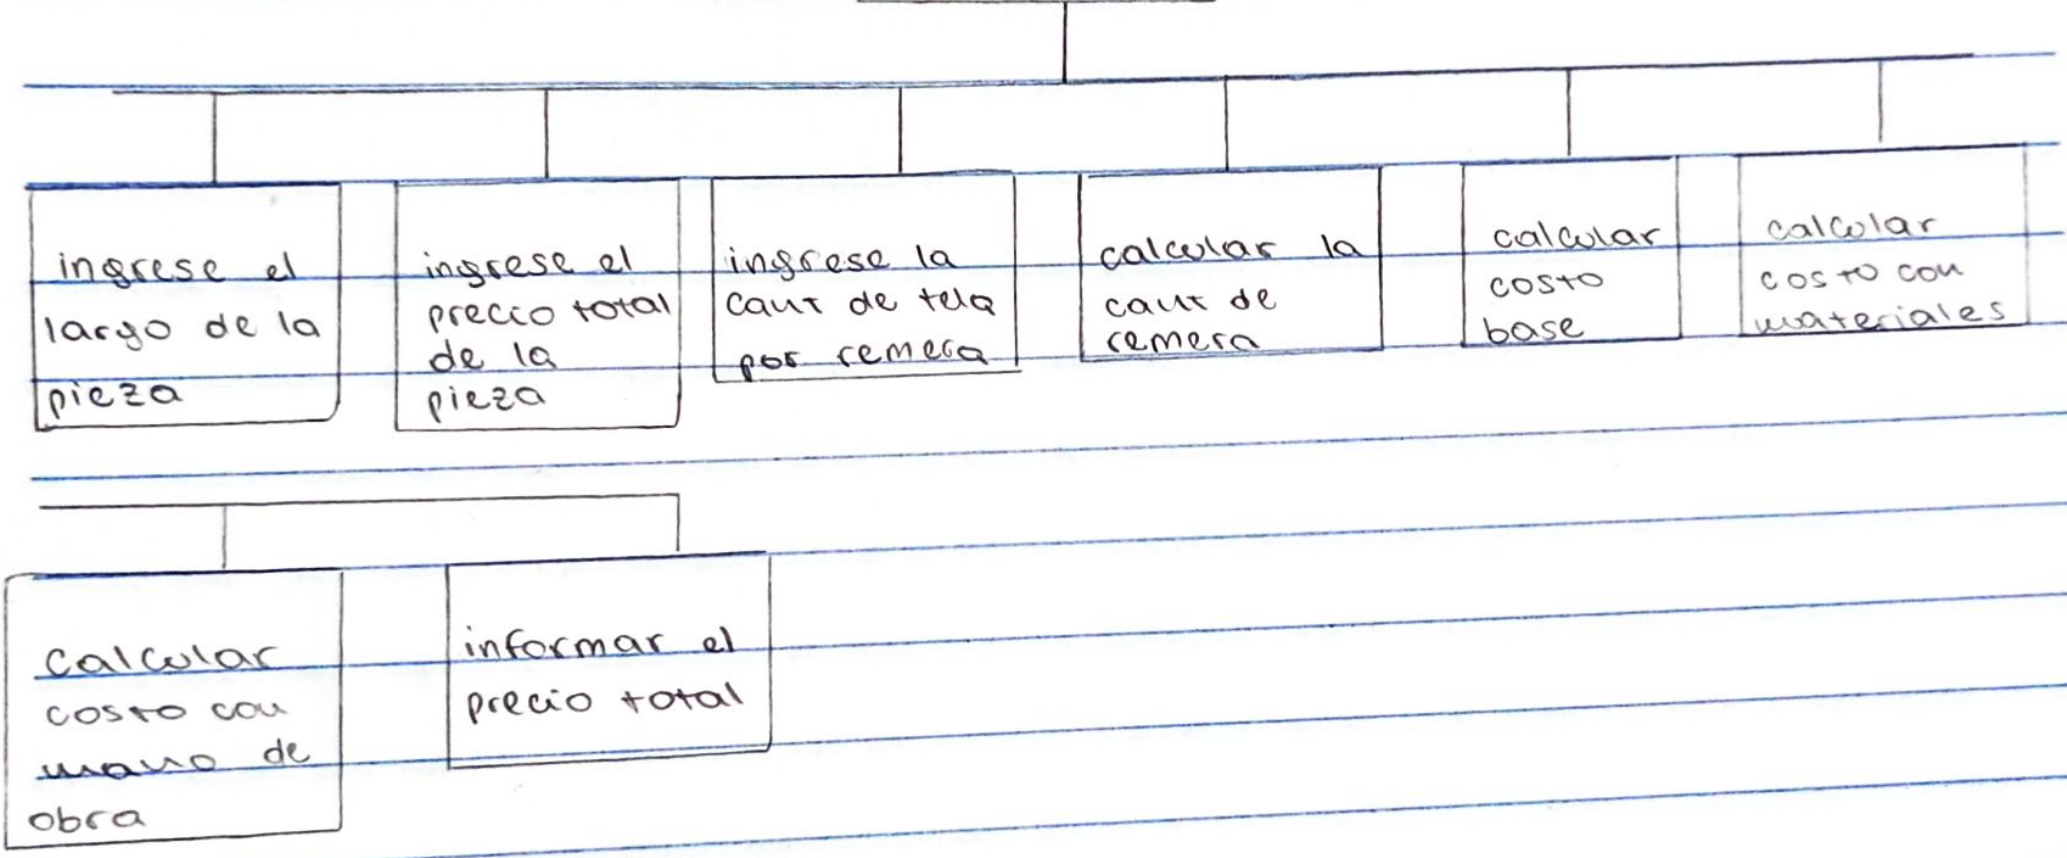 ingrese el
largo de la
pieza
ingrese el
precio total
de la
pieza
ingrese la
cant de tela
por remera
calcular la
cant de
remera
calcular
costo
base
calcular
costo con
materiales
calcular
costo con
mano de
obra
informar el
precio total